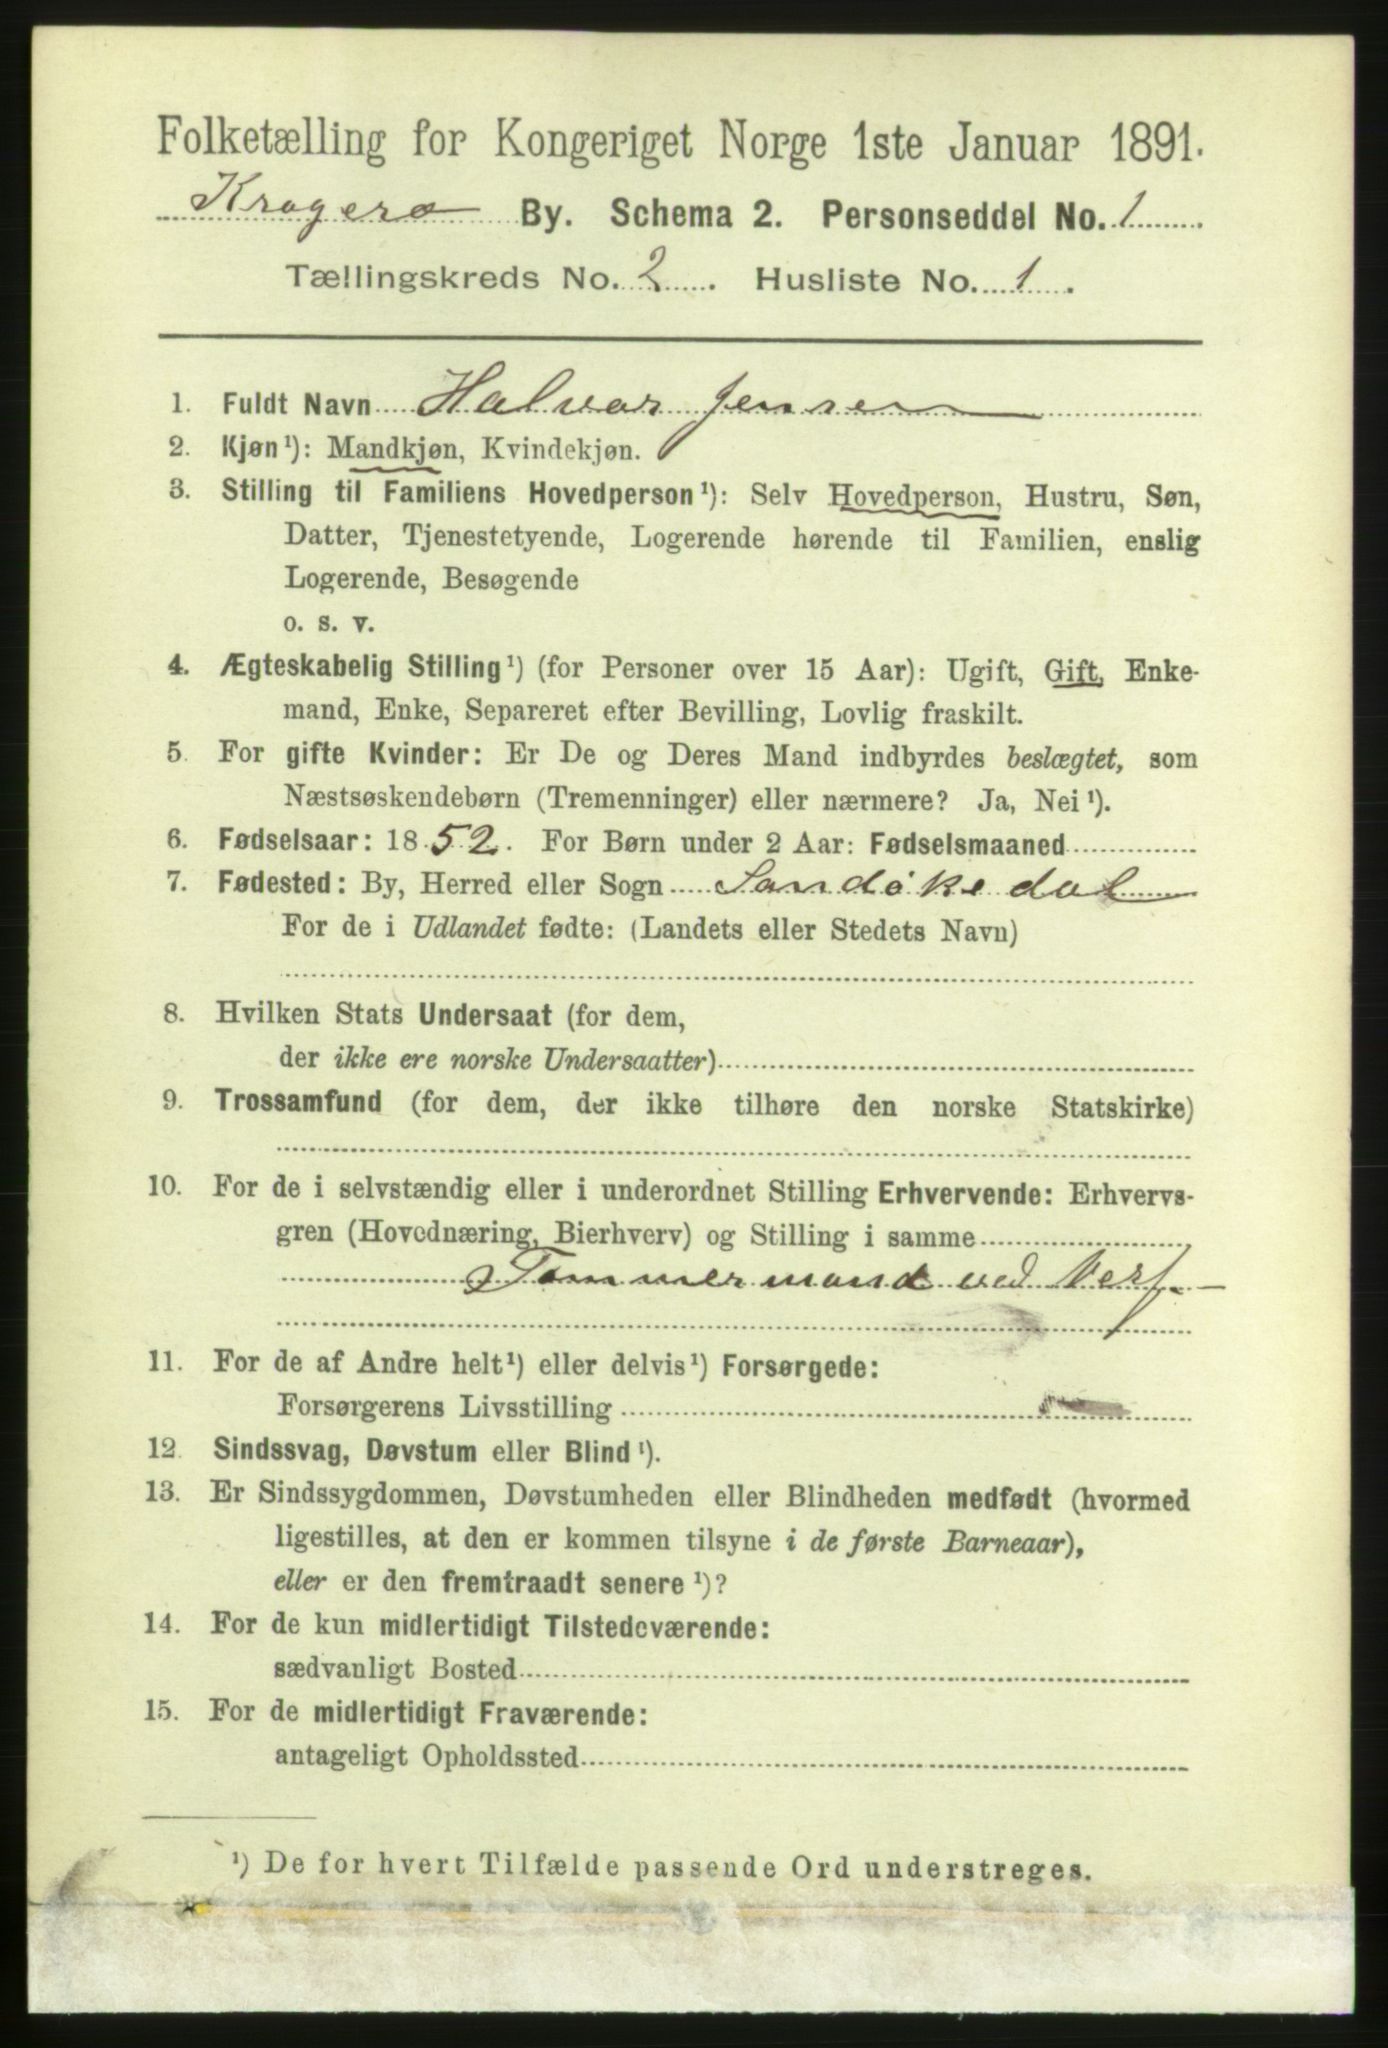 Folketælling for Kongeriget Norge 1ste Januar 1891.
Kragerø By. Schema 2. Personseddel No. 1
Tællingskreds No. 2. Husliste No. 1.
1. Fuldt Navn Halvor Jensen
2. Kjøn¹): Mandkjøn, Kvindekjøn.
3. Stilling til Familiens Hovedperson¹): Selv Hovedperson, Hustru, Søn,
Datter, Tjenestetyende, Logerende hørende til Familien, enslig
Logerende, Besøgende
o. s. v.
4. Ægteskabelig Stilling¹) (for Personer over 15 Aar): Ugift, Gift, Enke-
mand, Enke, Separeret efter Bevilling, Lovlig fraskilt.
5. For gifte Kvinder: Er De og Deres Mand indbyrdes beslægtet, som
Næstsøskendebørn (Tremenninger) eller nærmere? Ja, Nei¹).
6. Fødselsaar: 1852. For Børn under 2 Aar: Fødselsmaaned
7. Fødested: By, Herred eller Sogn Sandøkedal
For de i Udlandet fødte: (Landets eller Stedets Navn)
8. Hvilken Stats Undersaat (for dem,
der ikke ere norske Undersaatter)
9. Trossamfund (for dem, der ikke tilhøre den norske Statskirke)
10. For de i selvstændig eller i underordnet Stilling Erhvervende: Erhvervs-
gren (Hovednæring, Bierhverv) og Stilling i samme
Tømmermand ved Verf.
11. For de af Andre helt¹) eller delvis¹) Forsørgede:
Forsørgerens Livsstilling
12. Sindssvag, Døvstum eller Blind¹).
13. Er Sindssygdommen, Døvstumheden eller Blindheden medfødt (hvormed
ligestilles, at den er kommen tilsyne i de første Barneaar),
eller er den fremtraadt senere¹)?
14. For de kun midlertidigt Tilstedeværende:
sædvanligt Bosted
15. For de midlertidigt Fraværende:
antageligt Opholdssted
¹) De for hvert Tilfælde passende Ord understreges.